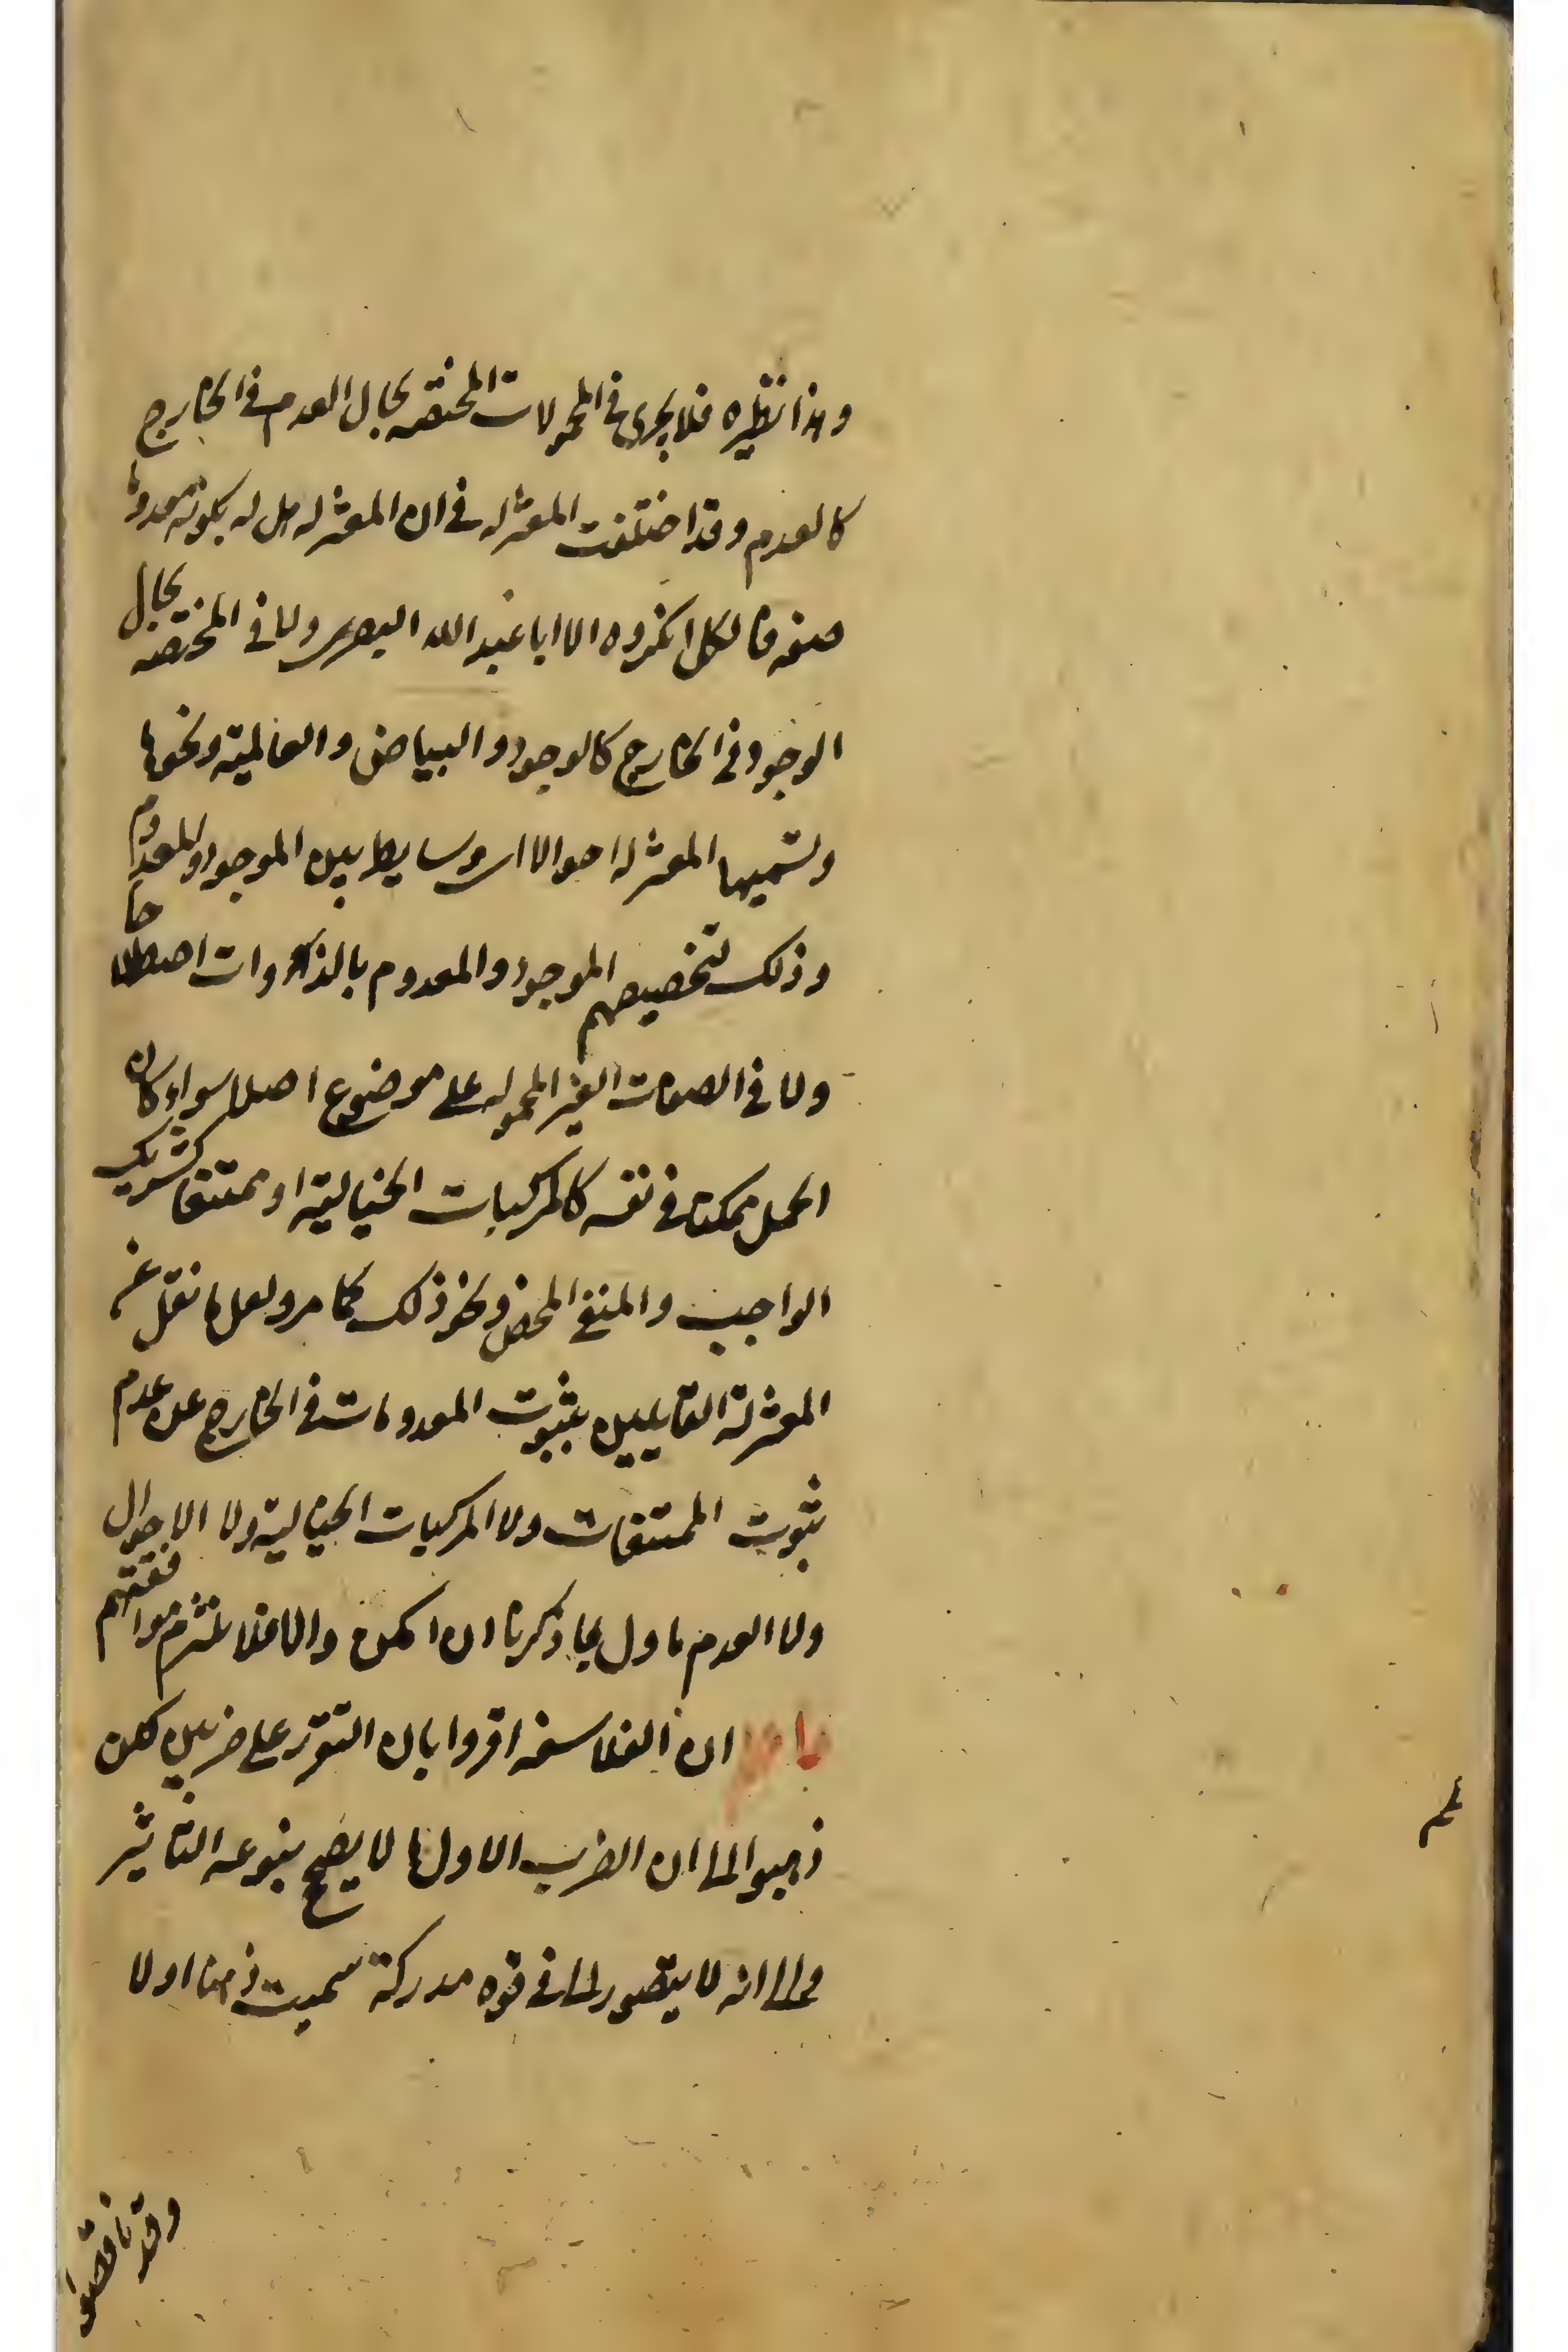 وهذا نظيره فلا يجرى فى المحمولات المختصه بحال العدم فى الخارج
كالعدم وقد اختلفت المعتزله فى ان المعتزله هل له بكونه معدوما
صفه فالكل انكروه الا ابا عبد الله البصرى ولا فى المختصه بحال
الوجود فى الخارج كالوجود والبياض والعالمية ونحوها
ولتسميها المعتزله احوالا اى وسايط بين الموجود والمعدوم
وذلك لتخصيصهم الموجود والمعدوم بالذوات اصطلاحا
ولا فى الصفات الغير المحموله على موضوع اصلا سواء كان
الحمل ممكنا فى نفسه كالمركبات الخيالية او ممتنعا كشريك
الواجب والمنفى المحض ونحو ذلك كما مر ولعل ما نقل عن
المعتزلة القايلين بثبوت المعدومات فى الخارج من عدم
ثبوت الممتنعات ولا المركبات الخيالية ولا الاحوال
ولا العدم ماول بما ذكرنا ان امكن والا فلا نلتزم موافقتهم
ان الفلاسفه اقروا بان التقرر على ضربين لكن
ذهبوا الى ان الضرب الاول ما لا يصح بنوعه التاثير
والى انه لا يتصور الا فى قوه مدركة سميت ذهنا اولا
وقد ناقضو